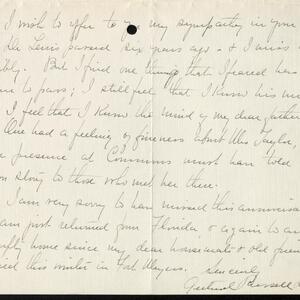 I wish to offer to you my sympathy in your
Lewis passed six years ago - & I miss
But I find one thing that I feared has
to pass; I still feel that I know his
I feel that I know the mind of my dear father
One had a feeling of fineness about Mrs Taylor,
presence at Commons must have told
story to those who met her there.
I am very sorry to have missed this anniversary
am just returned from Florida, & again to an
empty home since my dear housemate & old friend
died this winter in Fort Myers. Sincerely
Gertrude Russell